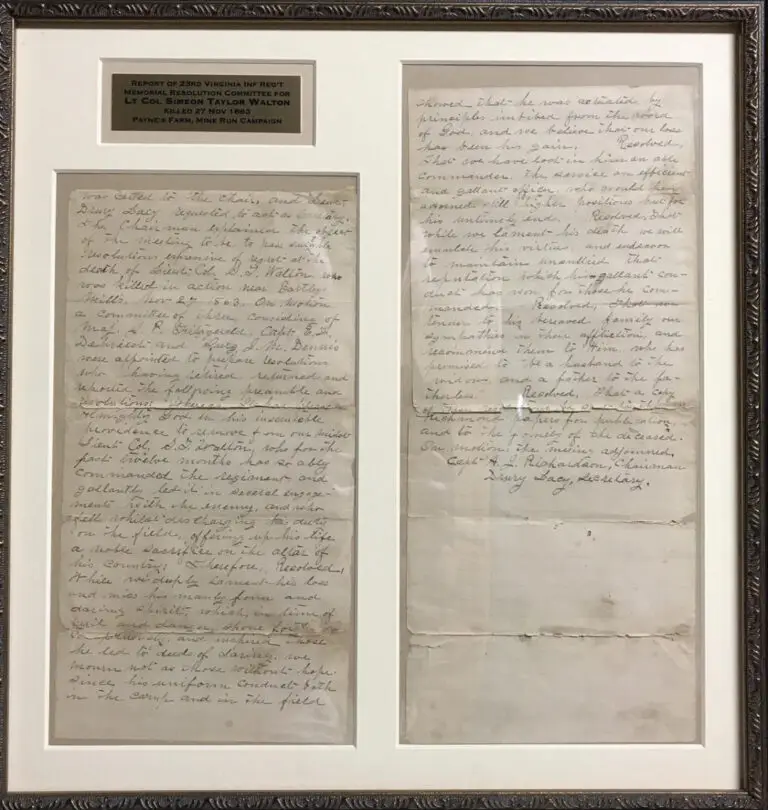 REPORT OF 23RD VIRGINIA INF REG'T
MEMORIAL RESOLUTION COMMITTEE FOR
LT COL SIMEON TAYLOR WALTON
KILLED 27 NOV 1863
PAYNE'S FARM, MINE RUN CAMPAIGN
was called to the chair, and Lieut.
Drury Lacy requested to act as Secretary.
The Chairman explained the object
of the meeting to be to pass suitable
resolutions expressive of regret at the
death of Lieut. Col. S. T. Walton, who
was killed in action near Bartley
Mills, Nov 27 1863. On motion
a committee of three consisting of
Maj. J. P. Capt E. F.
and J. M. Dennis
were appointed to prepare resolutions
who having retired, returned and
reported the following preamble and
resolutions: Whereas it has pleased
Almighty God in his inscrutable
providence to remove from our midst
Lieut Col, S. T. Walton, who for the
past twelve months has so ably
commanded the regiment and
gallantly led it in several engage-
ments with the enemy, and who
fell whilst discharging his duty
on the field, offering up his life
a noble sacrifice on the altar of
his country: Therefore, Resolved,
While we deeply lament his loss
and miss his manly form and
daring spirit, which, in time of
peril and danger, shone forth
and nerved those
he led to deeds of daring, we
mourn not as those without hope.
Since his uniform conduct both
in the camp and in the field
showed that he was actuated by
principles imbibed from the word
of God, and we believe that our loss
has been his gain. Resolved,
That we have lost in him an able
commander. The service an efficient
and gallant officer, who would have
adorned still higher positions but for
his untimely end. Resolved, That
while we lament his death we will
emulate his virtues, and endeavor
to maintain unsullied that
reputation which his gallant con-
duct has won for those he com-
manded. Resolved, That we
tender to his bereaved family our
sympathies in their affliction, and
recommend them to Him, who has
promised to be a husband to the
widow, and a father to the fa-
therless. Resolved, That a copy
of these
Richmond papers for publication,
and to the family of the deceased.
On motion the meeting adjourned.
Capt A. J. Richardson, Chairman
Drury Lacy, Secretary.